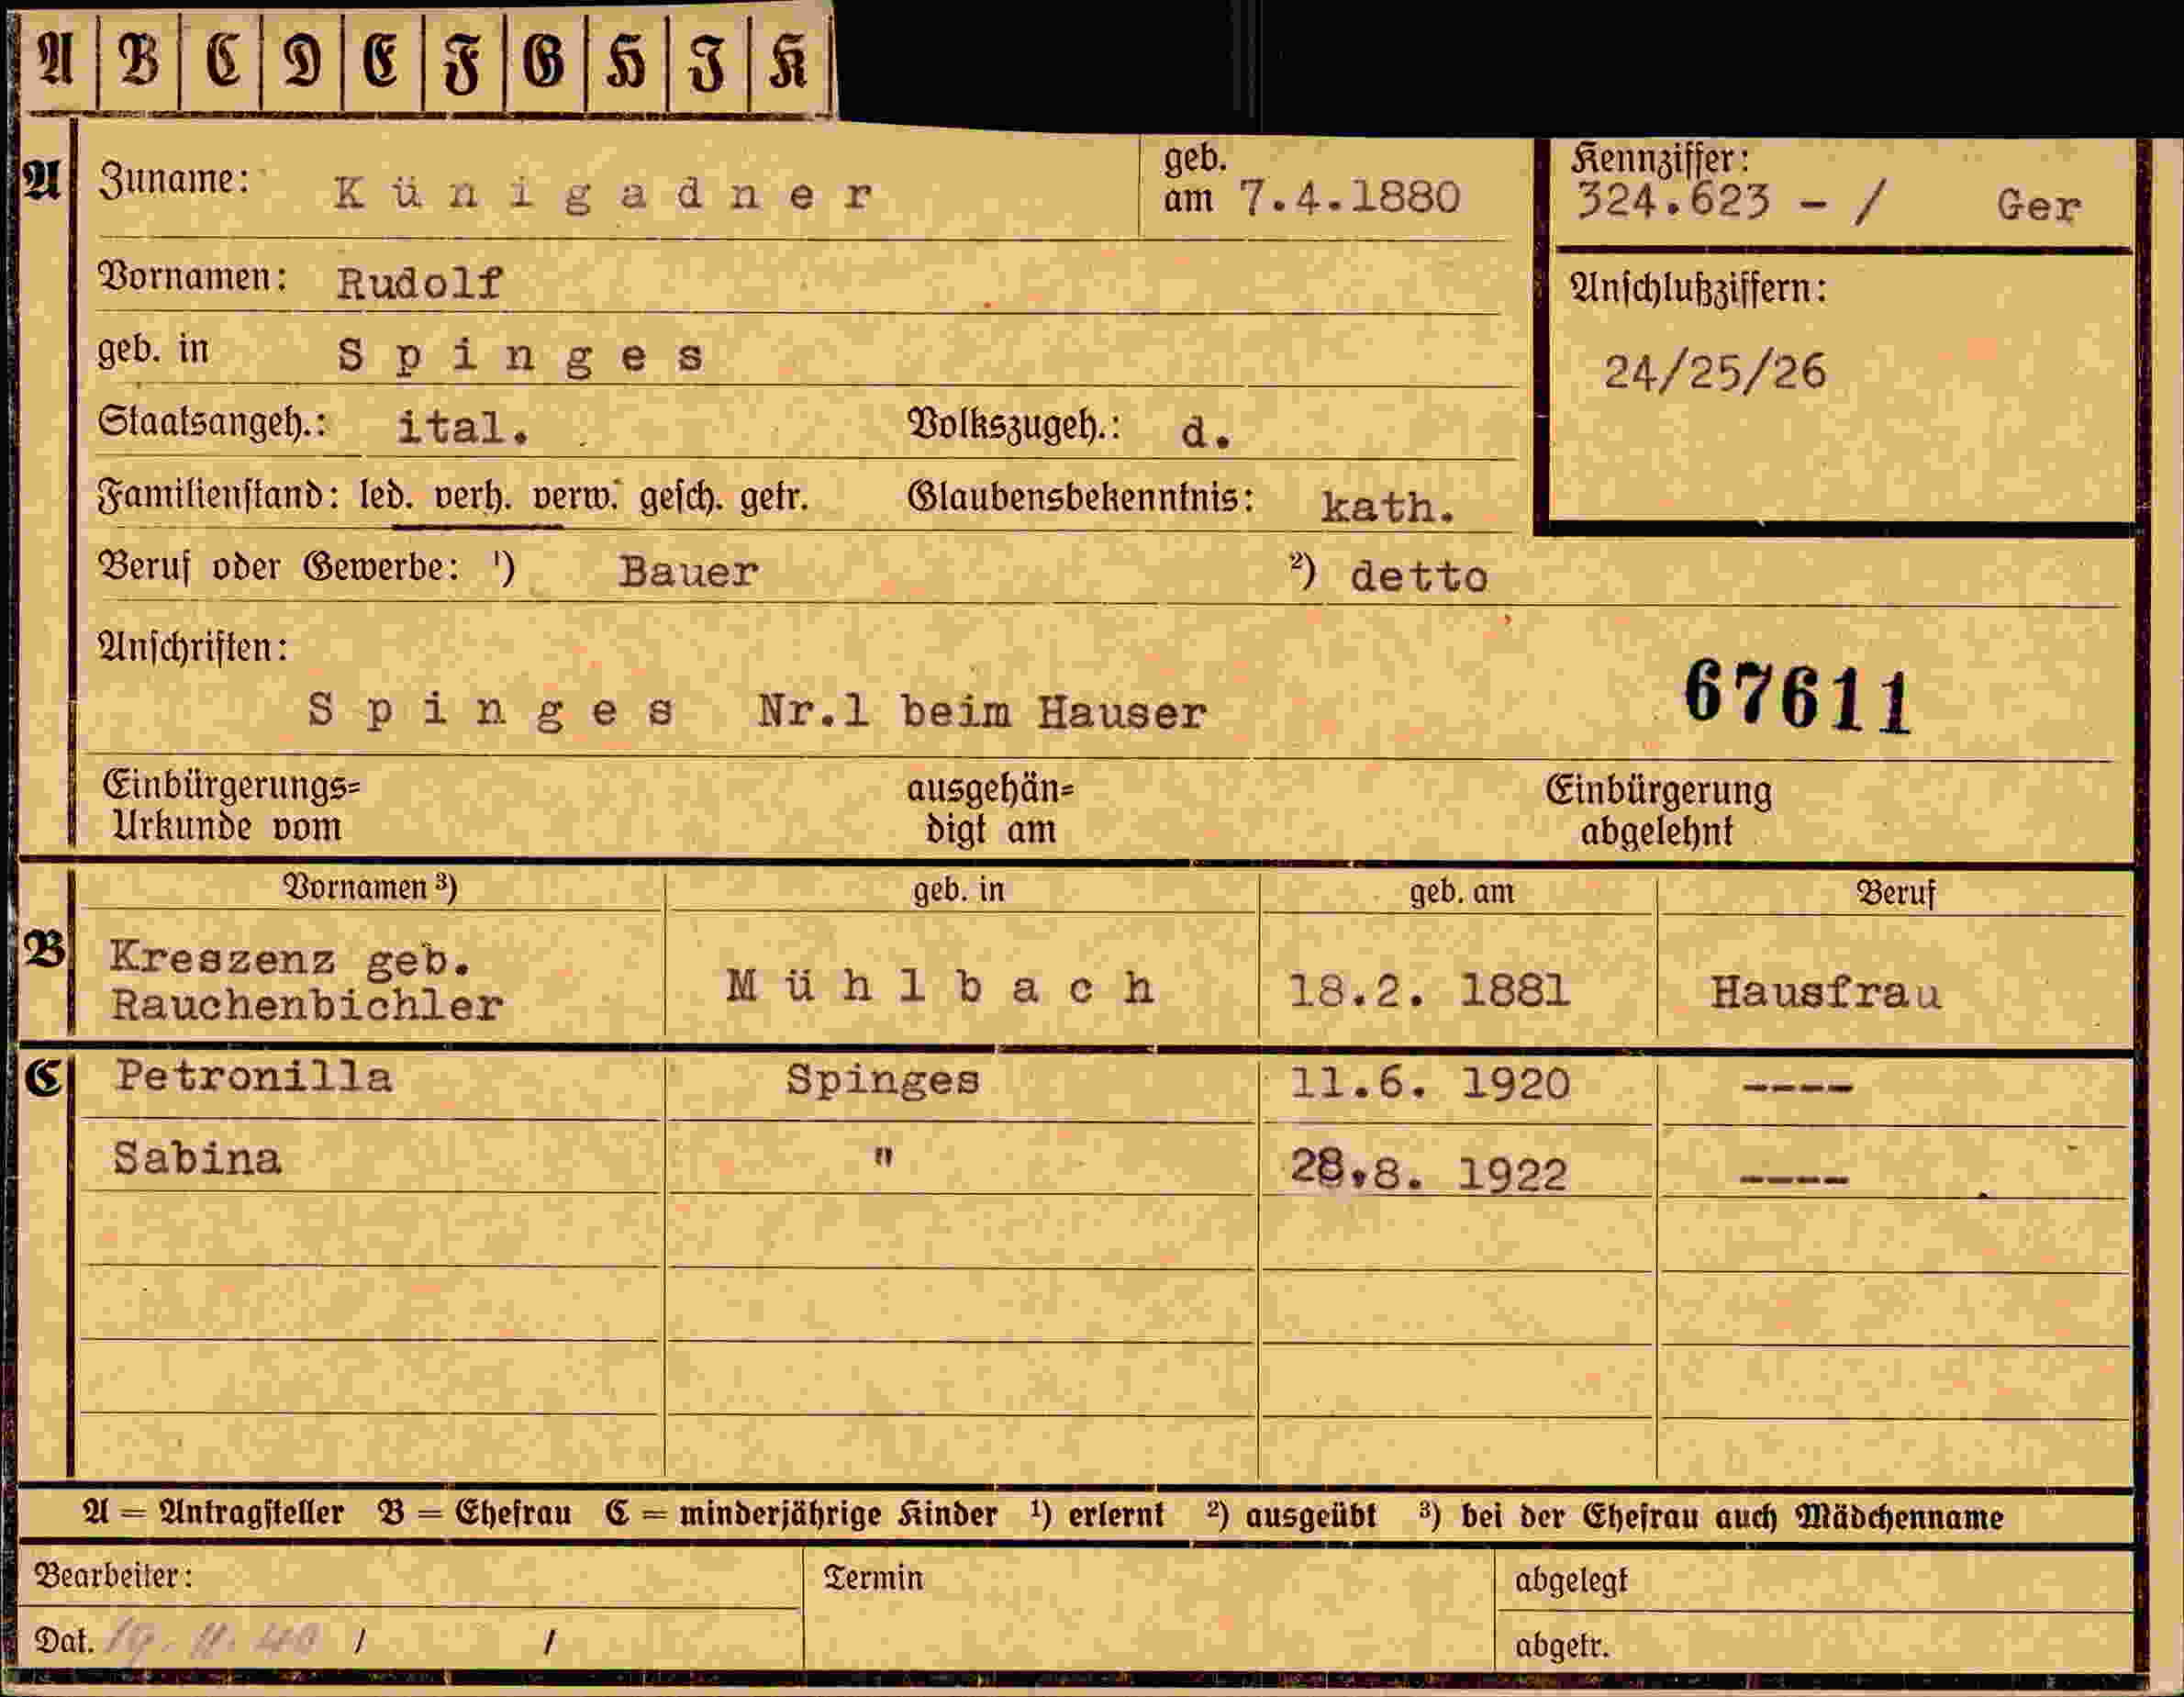 A B C D E F G H J K
A Zuname: Künigadner geb. am 7.4.1880 Kennziffer:
324.623 - / Ger
Vornamen: Rudolf Anschlußziffern:
geb. in Spinges 24/25/26
Staatsangeh.: ital. Volkszugeh.: d.
Familienstand: led. verh. verw. gesch. getr. Glaubensbekenntnis: kath.
Beruf oder Gewerbe: ¹) Bauer ²) detto
Anschriften:
Spinges Nr.1 beim Hauser 67611
Einbürgerungs= ausgehän= Einbürgerung
Urkunde vom digt am abgelehnt
Vornamen ³) geb. in geb. am Beruf
B Kreszenz geb.
Rauchenbichler Mühlbach 18.2. 1881 Hausfrau
C Petronilla Spinges 11.6. 1920 ----
Sabina " 28.8. 1922 ----
A = Antragsteller B = Ehefrau C = minderjährige Kinder ¹) erlernt ²) ausgeübt ³) bei der Ehefrau auch Mädchenname
Bearbeiter: Termin abgelegt
Dat. 19. 11. 40 / / abgetr.